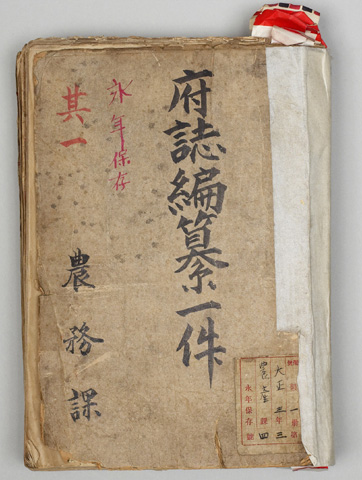 府誌編纂一件
永年保存
其一
農務課
大正 三年
永年保存